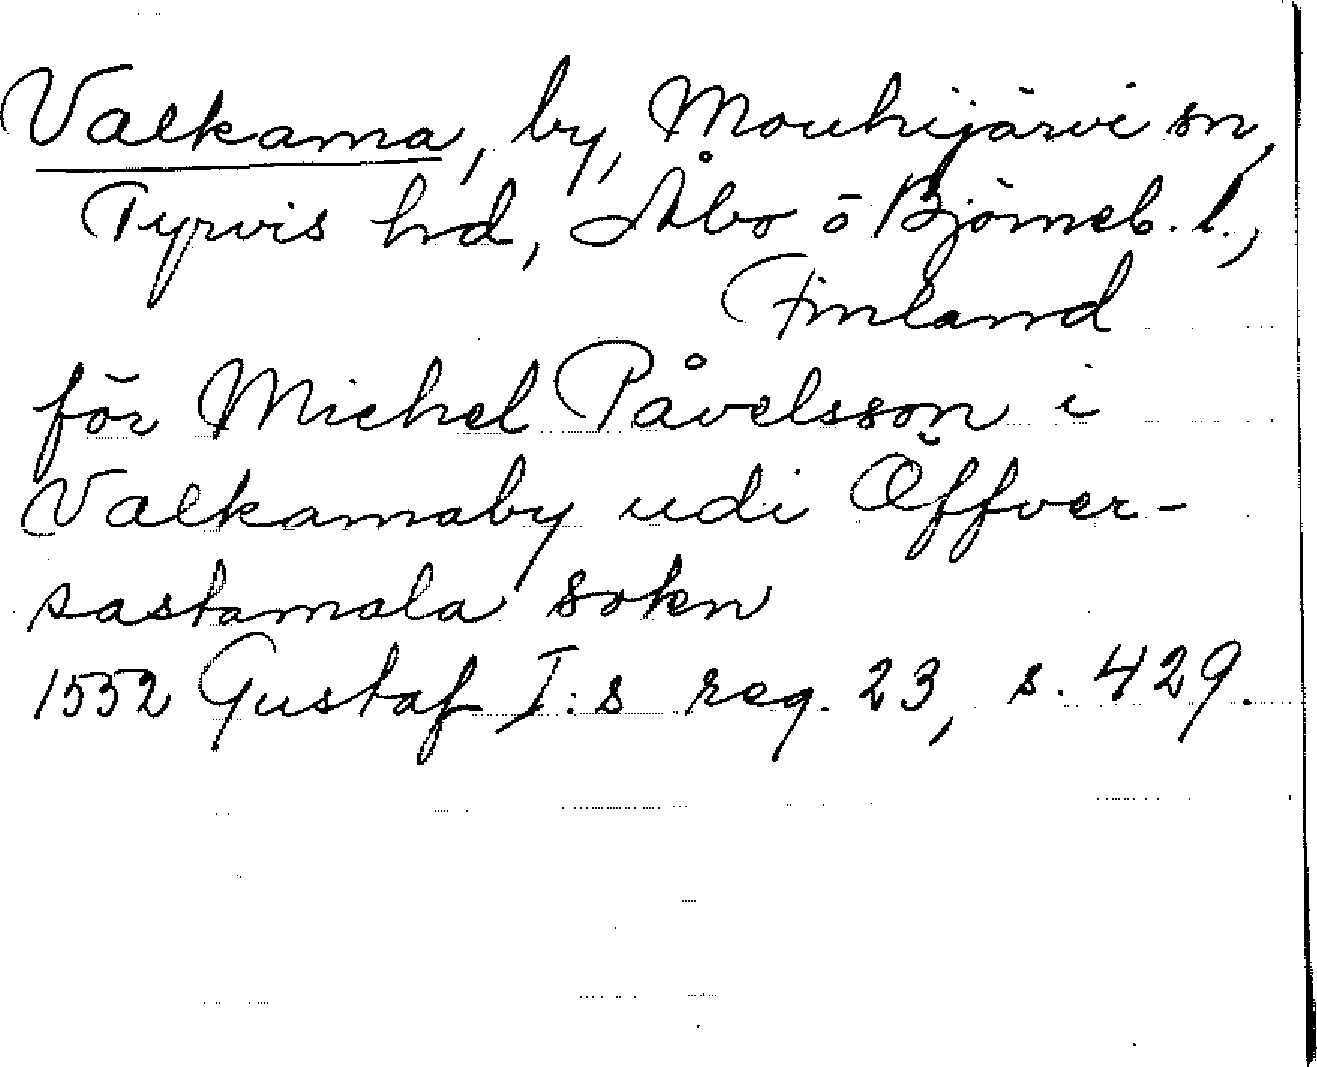 Valkama, by, Mouhijärvi sn,
Tyrvis hd, Åbo ö Björneb. l.,
Finland
för Michel Påvelsson i
Valkamaby udi Öffver-
sastamala sokn
1552 Gustaf I:s reg. 23, s. 429.